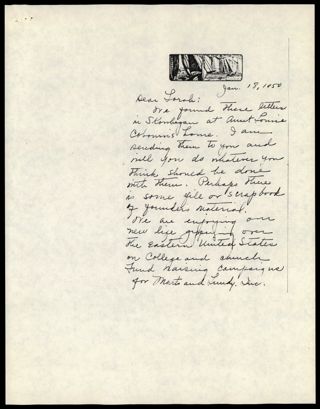 Jan. 18, 1950
Dear Sarah:
We found these letters
in Skowhegan at Aunt Louise
Coburn's home. I am
sending them to you and
will you do whatever you
think should be done
with them. Perhaps there
is some file or scrapbook
of founders material.
We are enjoying our
new life gypsying over
the Eastern United States
on College and church
Fund raising campaigns
for Marts and Lundy, Inc.